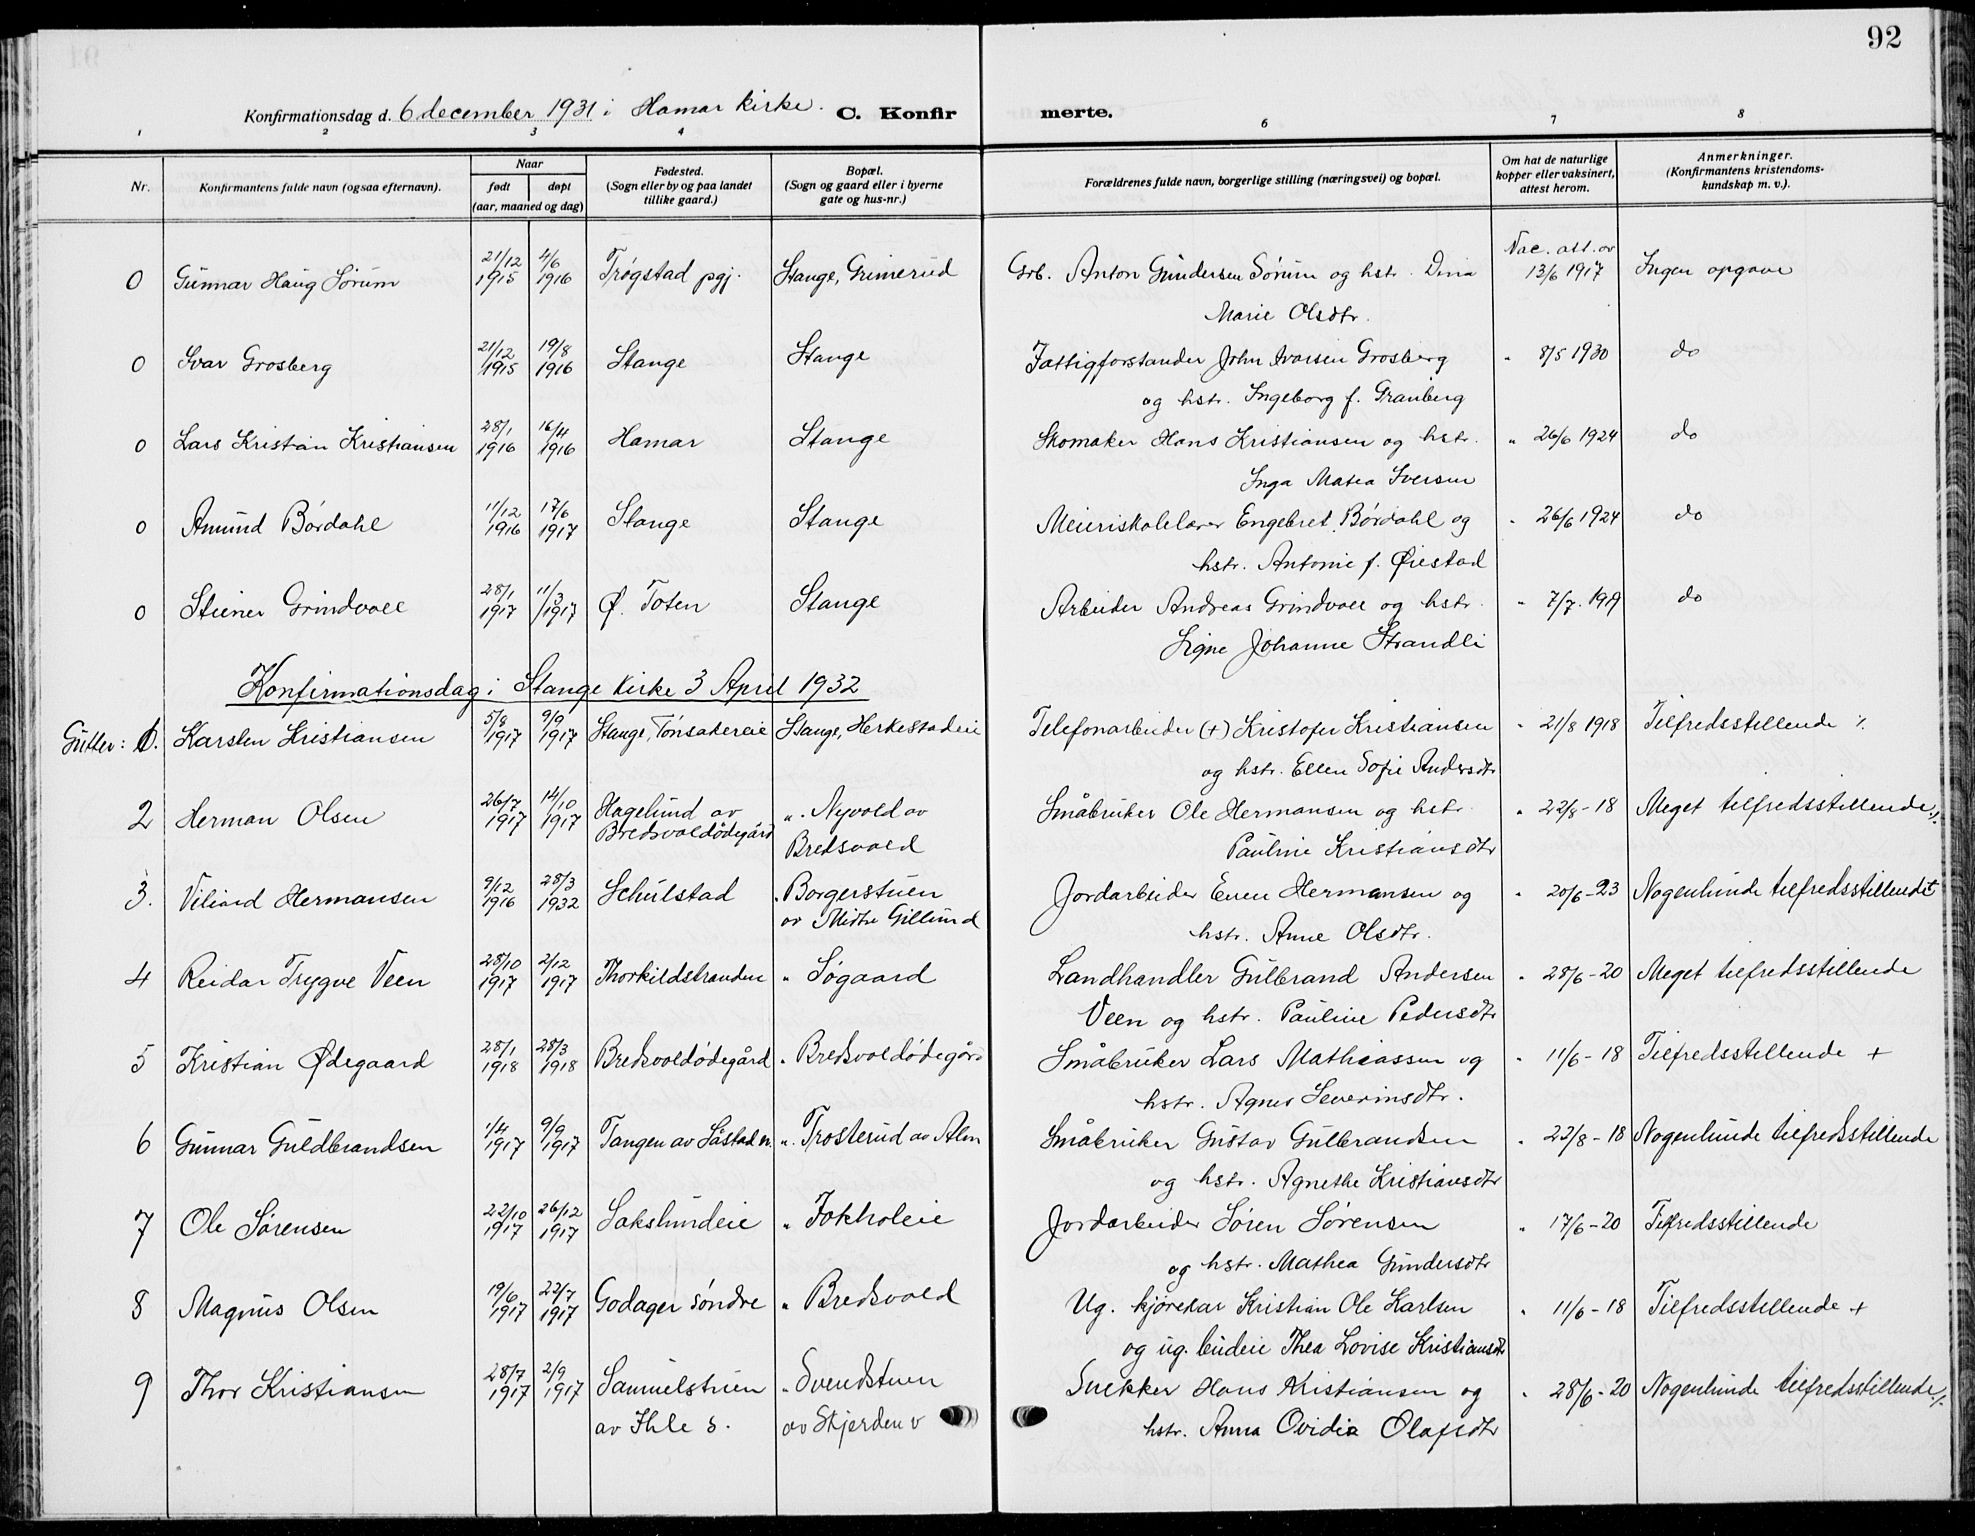 92
Konfirmationsdag d. 6 december 1931 i Hamar kirke. C. Konfir merte.
1 2 3 4 6 7 8
Nr. Konfirmantens fulde navn (ogsaa efternavn). Naar født døpt (aar, maaned og dag) Fødested. (Sogn eller by og paa landet tillike gaard.) Bopæl. (Sogn og gaard eller i byerne gate og hus-nr.) Forældrenes fulde navn, borgerlige stilling (næringsvei) og bopæl. Om hat de naturlige kopper eller vaksinert, attest herom. Anmerkninger. (Konfirmantens kristendomskundskap m. v.).
Vac. att. av
0 Gunnar Haug Sørum 21/12 1915 4/6 1916 Trøgstad pgj. Stange, Grimerud Grb. Anton Gundersen Sørum og hstr. Dina 13/6 1917 Ingen opgave
Marie Olsdtr.
0 Ivar Grosberg 21/12 1915 19/8 1916 Stange Stange Fattigforstander John Ivarsen Grosberg " 8/5 1930 do
og hstr. Ingeborg f. Granberg
0 Lars Kristian Kristiansen 28/1 1916 16/4 1916 Hamar Stange Skomaker Hans Kristiansen og hstr. " 26/6 1924 do
Inga Matea Iversen
0 Amund Børdahl 11/12 1916 17/6 1917 Stange Stange Meieriskolelærer Engebret Børdahl og " 26/6 1924 do
hstr. Antonie f. Øiestad
0 Steiner Grindvoll 28/1 1917 11/3 1917 Ø. Toten Stange Arbeider Andreas Grindvoll og hstr. " 7/7. 1919 do
Signe Johanne Strandli
Konfirmationsdag i Stange kirke 3 April 1932
Gutter: 1. Karsten Kristiansen 5/8 1917 9/9 1917 Stange, Tønsakereie Stange, Herkestadeie Telefonarbeider (+) Kristofer Kristiansen " 21/8 1918 Tilfredsstillende %
og hstr. Ellen Sofie Andersdtr
2 Herman Olsen 26/7 1917 14/10 1917 Hagelund av Bredsvoldødegård ". Nyvold av Bredsvold Småbruker Ole Hermansen og hstr. " 22/8 - 18 Meget tilfredsstillende %
Pauline Kristiansdtr
3. Viliard Hermansen 9/12 1916 28/3 1932 Schulstad " Borgerstuen av Midtre Gillund Jordarbeider Even Hermansen og " 20/6 - 23 Nogenlunde tilfredsstillende +
hstr. Anne Olsdtr.
4 Reidar Trygve Veen 28/10 1917 2/12 1917 Thorkildstranden " Søgaard Landhandler Gulbrand Andersen " 28/6 - 20 Meget tilfredsstillende
Veen og hstr. Pauline Pedersdtr
5 Kristian Ødegaard 28/1 1918 28/3 1918 Bredsvoldødegård " Bredsvoldødegård Småbruker Lars Mathiassen og " 11/6 - 18 Tilfredsstillende +
hstr. Agnes Severinsdtr.
6 Gunnar Guldbrandsen 1/4 1917 9/9 1917 Tangen av Såstad n. ". Trosterud av Alm Småbruker Gustav Gulbrandsen " 22/8 - 18 Nogenlunde tilfredsstillende
og hstr. Agnethe Kristiansdtr
7 Ole Sørensen 22/10 1917 26/12 1917 Sakslundeie " Fokholeie Jordarbeider Søren Sørensen " 17/6 - 20 Tilfredsstillende
og hstr. Mathea Gundersdtr
8 Magnus Olsen 19/6 1917 22/7 1917 Godager søndre " Bredsvold Ug. kjørekar Kristian Ole Karlsen " 11/6 - 18 Tilfredsstillende +
og ug. budeie Thea Lovise Kristiansdtr
9 Thor Kristiansen 28/7 1917 2/9 1917 Samuelstuen av Ihle s. " Svendstuen av Skjerden v Snekker Hans Kristiansen og " 28/6 - 20 Nogenlunde tilfredsstillende %
hstr. Anna Ovidia Olafsdtr